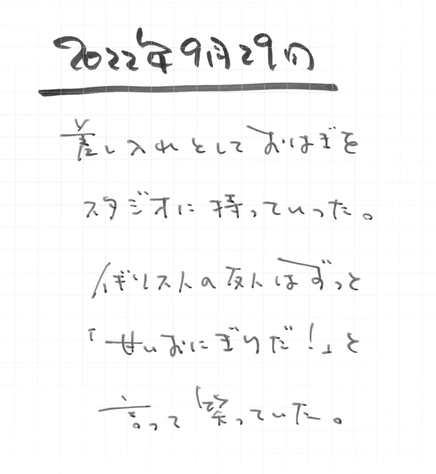 2022年9月29日
差し入れとしておはぎを
スタジオに持っていった。
イギリス人の友人はずっと
「甘いおにぎりだ！」と
言って笑っていた。